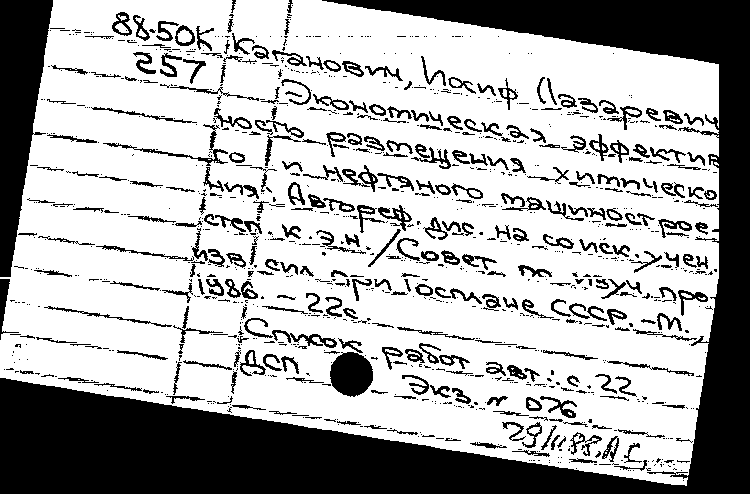 88-50К Каганович, Иосиф Лазаревич
257 Экономическая эффектив
ность размещения химическо
го и нефтяного машинострое-
ния. Автореф. дис. на соиск. учен.
степ. к.э.н. / Совет по изуч. про
изв. сил при Госплане СССР. -М.,
1986. - 22с.
Список работ авт.: с. 22.
ДСП. Экз. № 076.